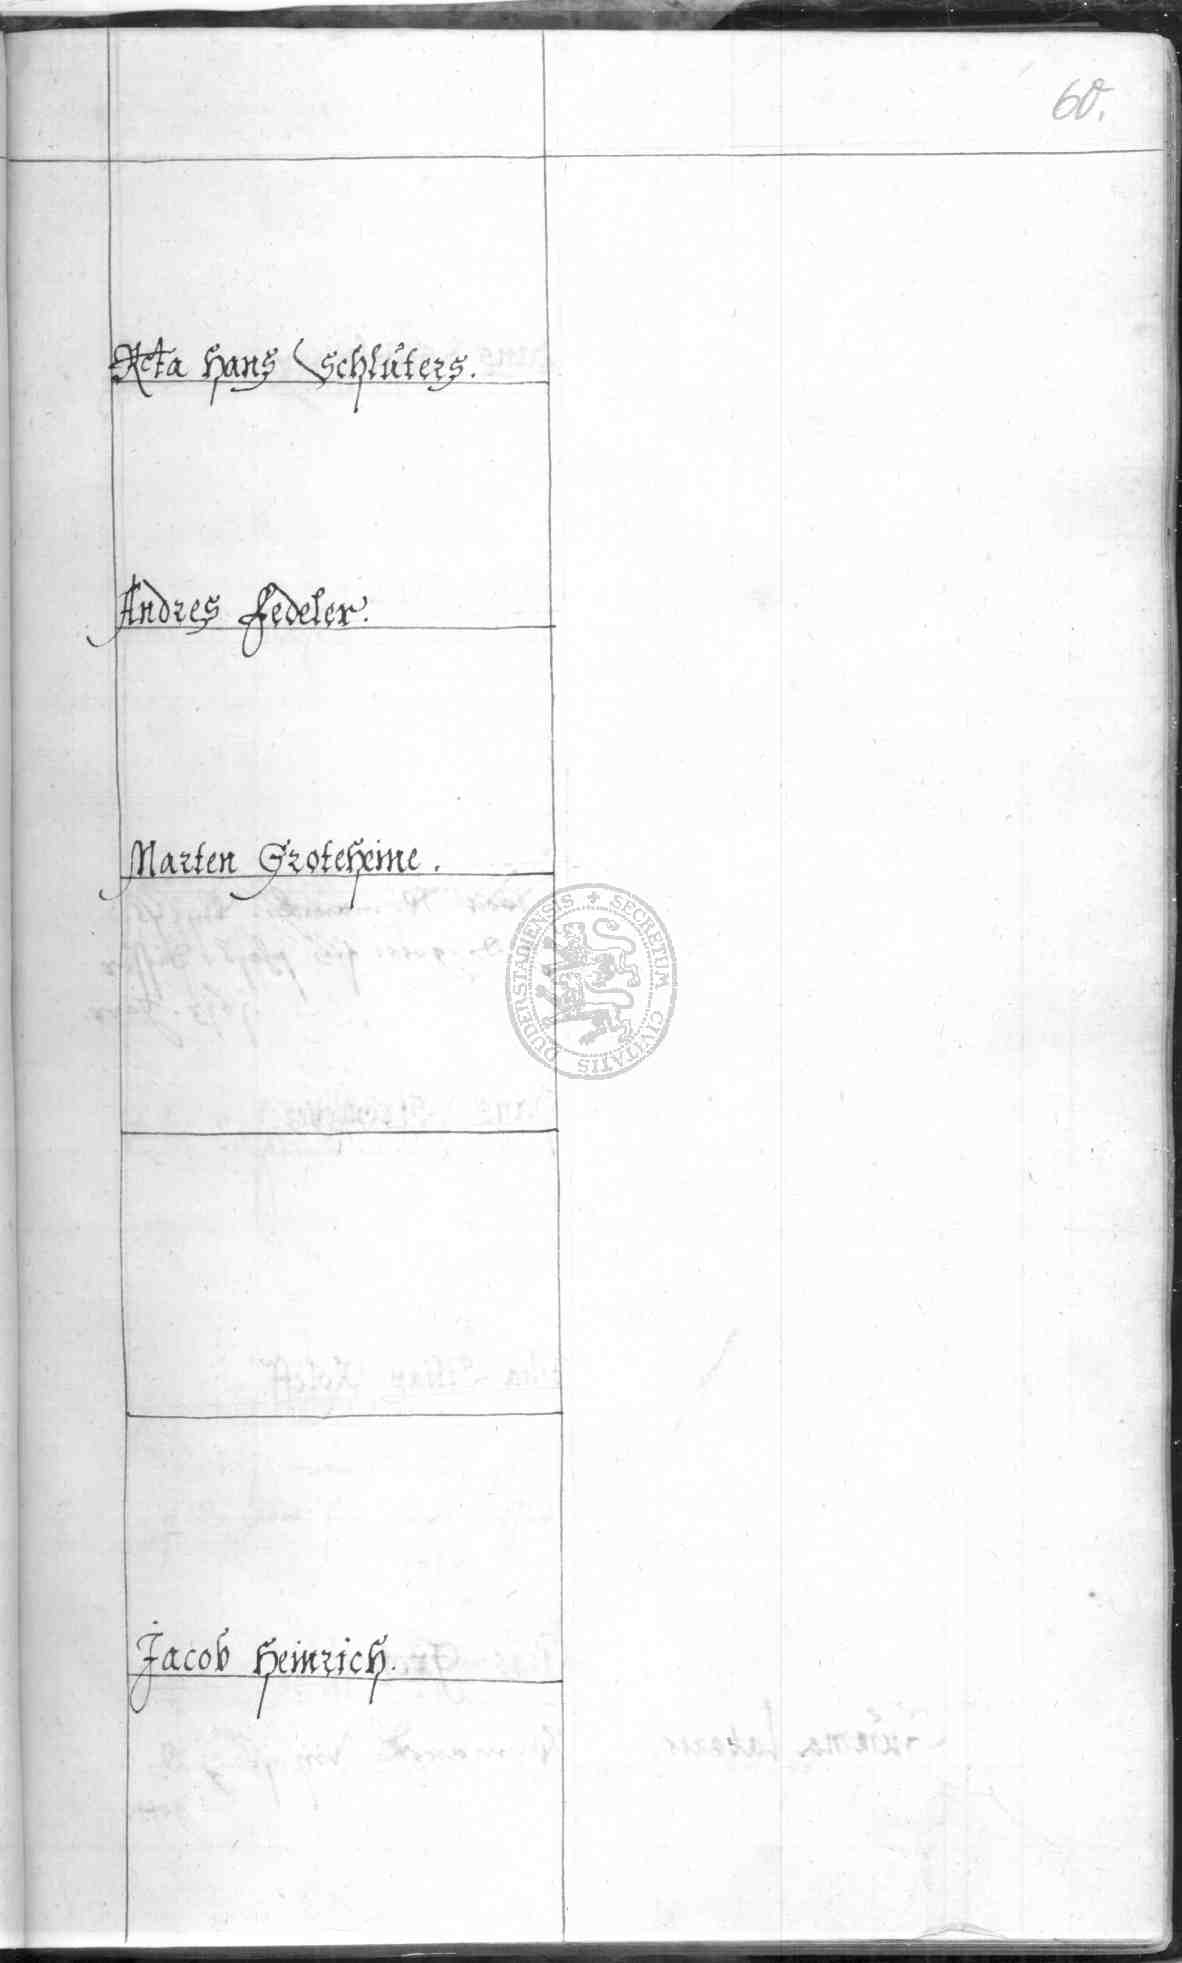 60.
Acta Hans Schlüters.
Andres Fedeler.
Marten Groteheine.
SECRETUM CIVITATIS DUDERSTADIENSIS
Jacob Heinrich.